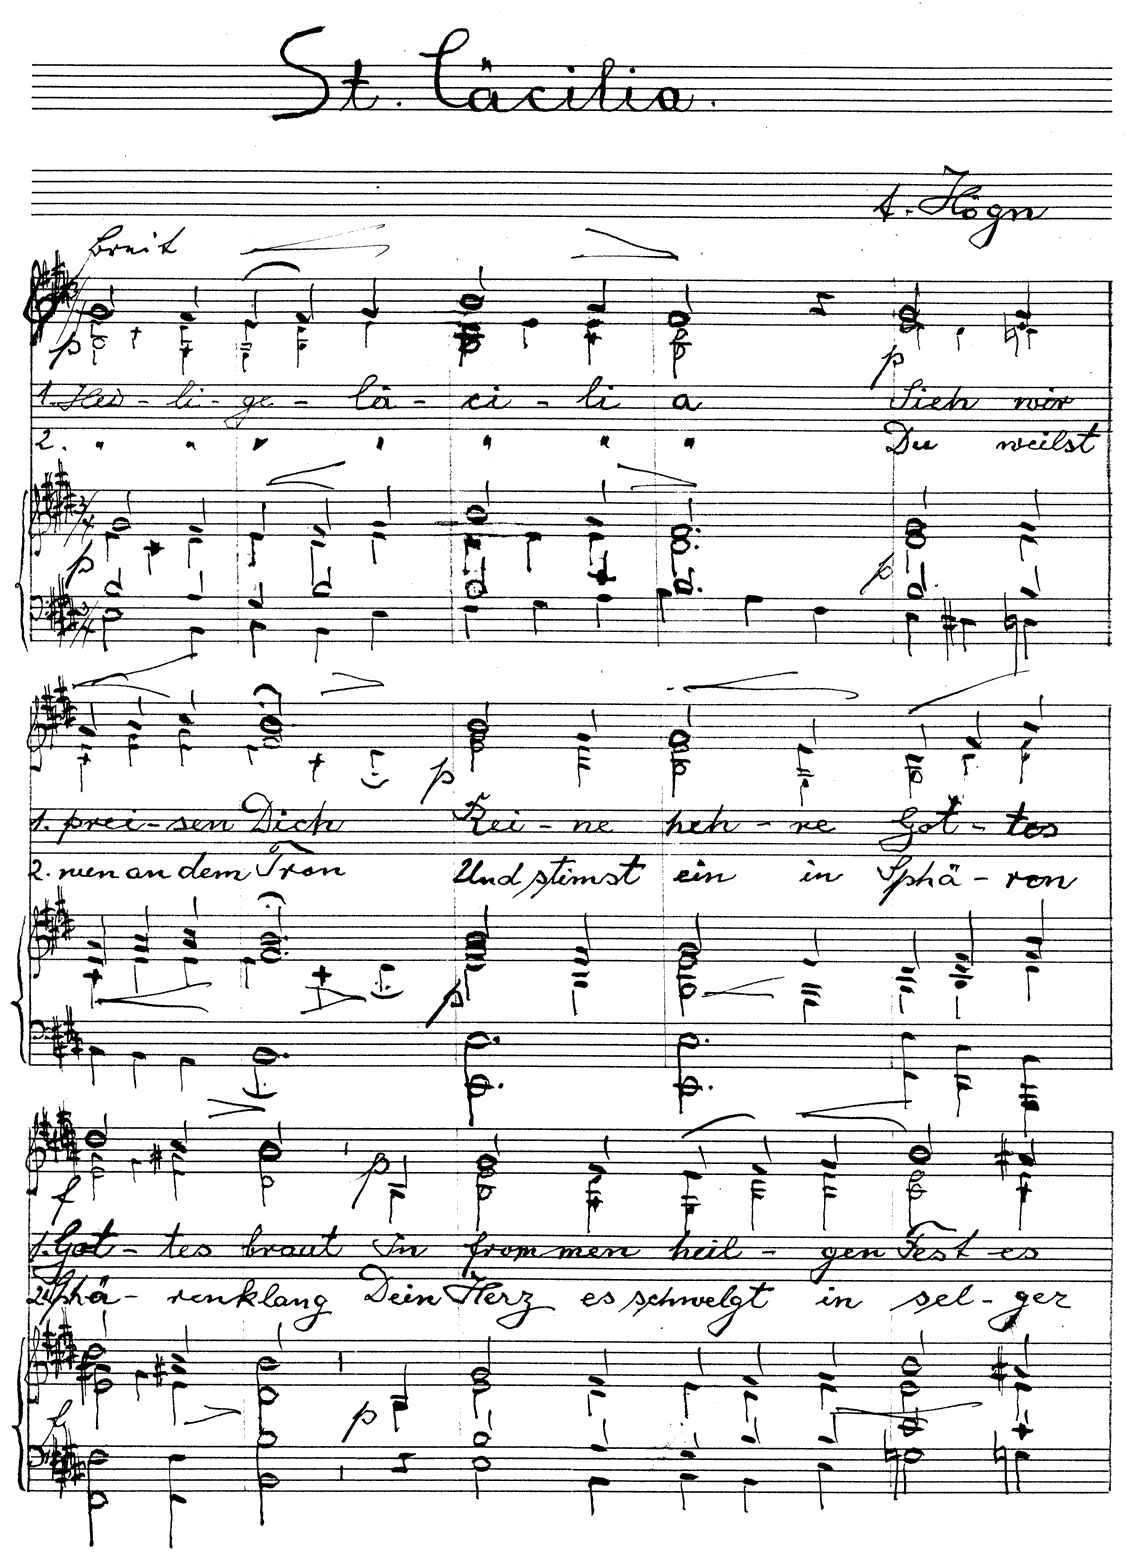 St. Cäcilia.
A. Högn
Breit
p p
1. Hei - li - ge - Cä - ci - li a Sieh wir
2. " " " " " " " Du weilst
p p
p
1. prei - sen Dich Rei - ne heh - re Got - tes
2. nun an dem Tron Und stimst ein in Sphä - ren
p
f p
1. Got - tes braut In frommen heil - gen Fest es
2. Sphä - renklang Dein Herz es schwelgt in sel - ger
f p